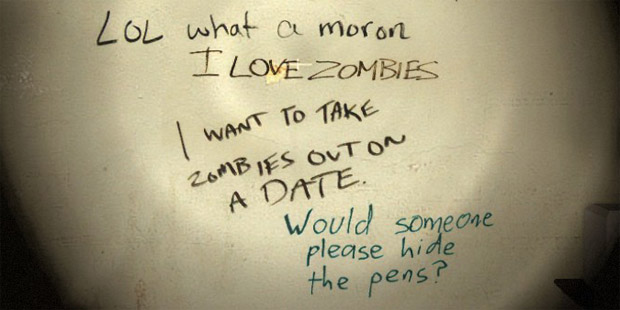 LOL what a moron
I LOVE ZOMBIES
I WANT TO TAKE
ZOMBIES OUT ON
A DATE.
Would someone
please hide
the pens?